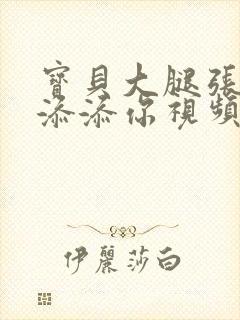 寶貝大腿張
添添你視頻
伊麗莎白